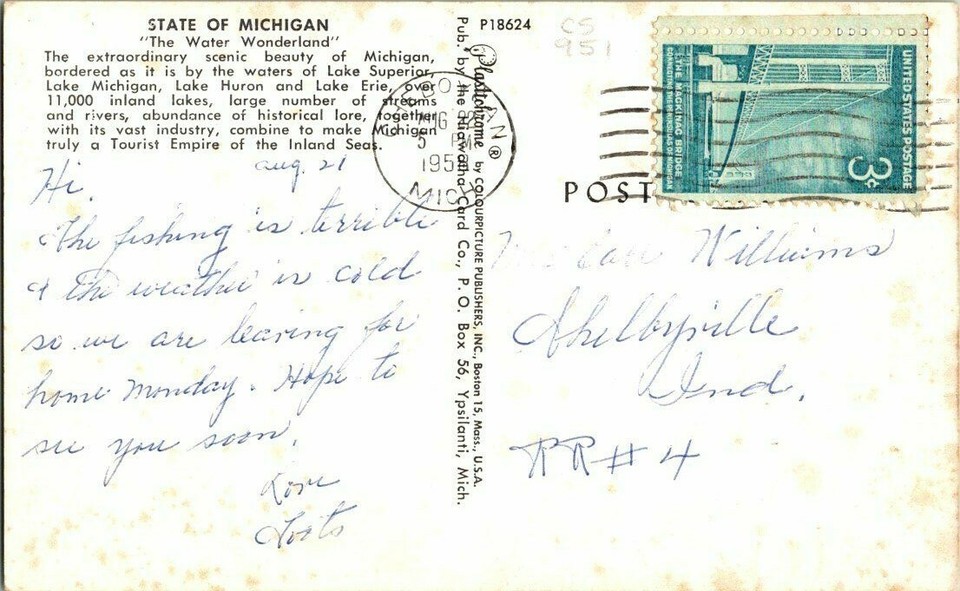 STATE OF MICHIGAN
"The Water Wonderland"
The extraordinary scenic beauty of Michigan,
bordered as it is by the waters of Lake Superior,
Lake Michigan, Lake Huron and Lake Erie, over
11,000 inland lakes, large number of streams
and rivers, abundance of historical lore, together
with its vast industry, combine to make Michigan
truly a Tourist Empire of the Inland Seas.
aug. 21
Hi
The fishing is terrible
& the weather is cold
so we are leaving for
home Monday. Hope to
see you soon.
Love
Toots
P18624
CS
951
Plastichrome ® by COLOURPICTURE PUBLISHERS, INC., Boston 15, Mass., U.S.A.
Pub. by the Hiawatha Card Co., P. O. Box 56, Ypsilanti, Mich.
5 PM
MICH
POST
UNITED STATES POSTAGE
3c
THE MACKINAC BRIDGE
CONNECTING THE PENINSULAS OF MICHIGAN
Williams
Shelbyville
Ind.
RR#4